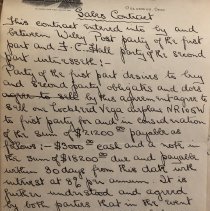 Sales Contract
This contract entered into by and
between Wiley Post party of the first
part and F.C. Hall party of the second
part witnesseth:-
Party of the first part desires to buy
and second party obligates and does
agree to sell on this agreement agree to
sell one Lockheed Vega airplane NR105W
to first party for and in consideration
of the sum of $21200.00 payable as
follows:- $3000.00 cash and a note in
the sum of $18200.00 due and payable
within 30 days from this date with
interest at 8% per annum. It is
further understood and agreed
by both parties that in the event